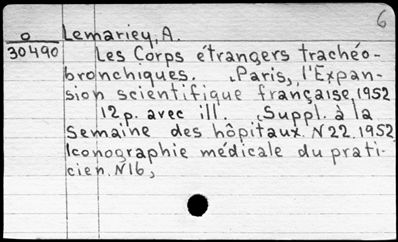 6
o Lemariey, A.
30490 Les Corps étrangers trachéo-
bronchiques. Paris, l'Expan-
sion scientifique française, 1952
12 p. avec ill. Suppl. à la
Semaine des hôpitaux. N 22. 1952,
Iconographie médicale du prati-
cien. N 16,